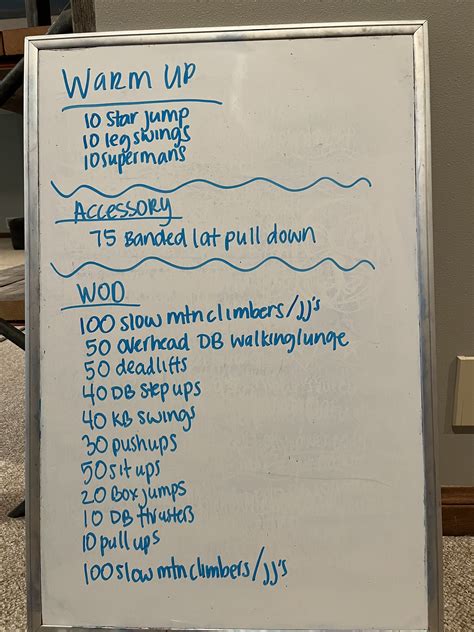 WARM UP
10 Star jump
10 leg swings
10 supermans
ACCESSORY
75 Banded lat pull down
WOD
100 slow mtn climbers/jj's
50 overhead DB walking lunge
50 deadlifts
40 DB step ups
40 KB swings
30 pushups
50 sit ups
20 Box jumps
10 DB thrusters
10 pull ups
100 slow mtn climbers/jj's